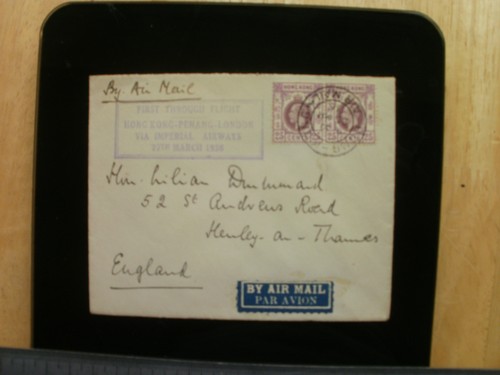 By Air Mail
FIRST THROUGH FLIGHT
HONG KONG-PENANG-LONDON
VIA IMPERIAL AIRWAYS
MARCH 1936
HONG KONG HONG KONG
Miss Lilian Drummond
52 St Andrews Road
Henley-on-Thames
England
BY AIR MAIL
PAR AVION